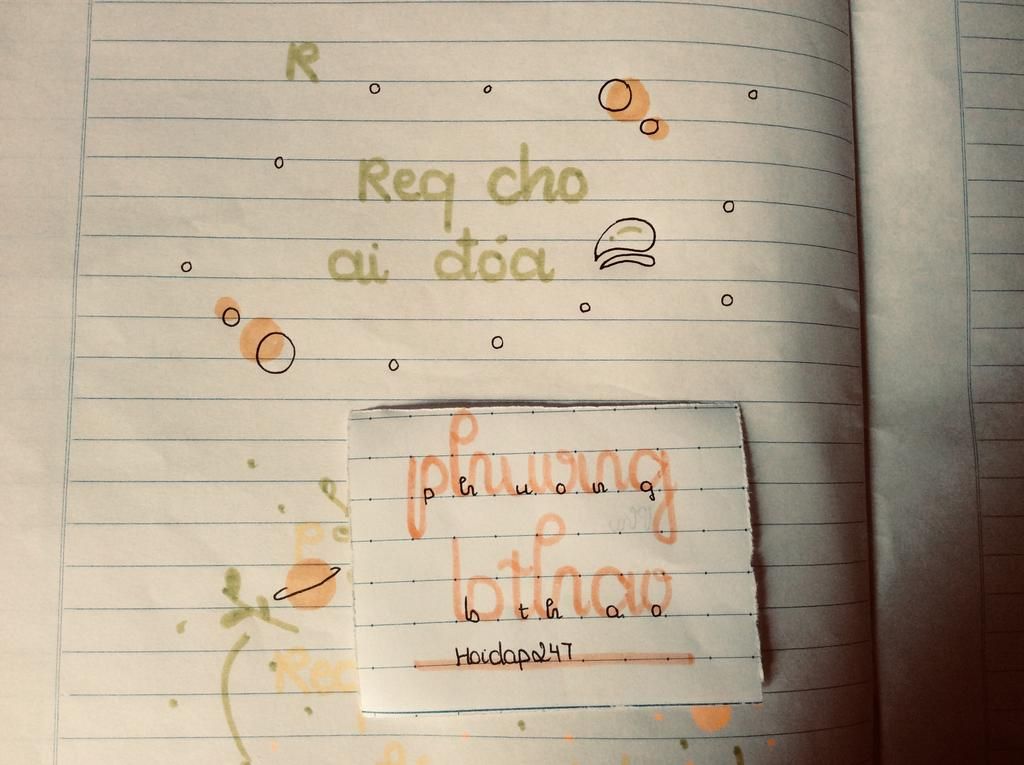 R
Req cho
ai đóa
phương
phuong
bthao
bthao
Hoidap247
P
Rec